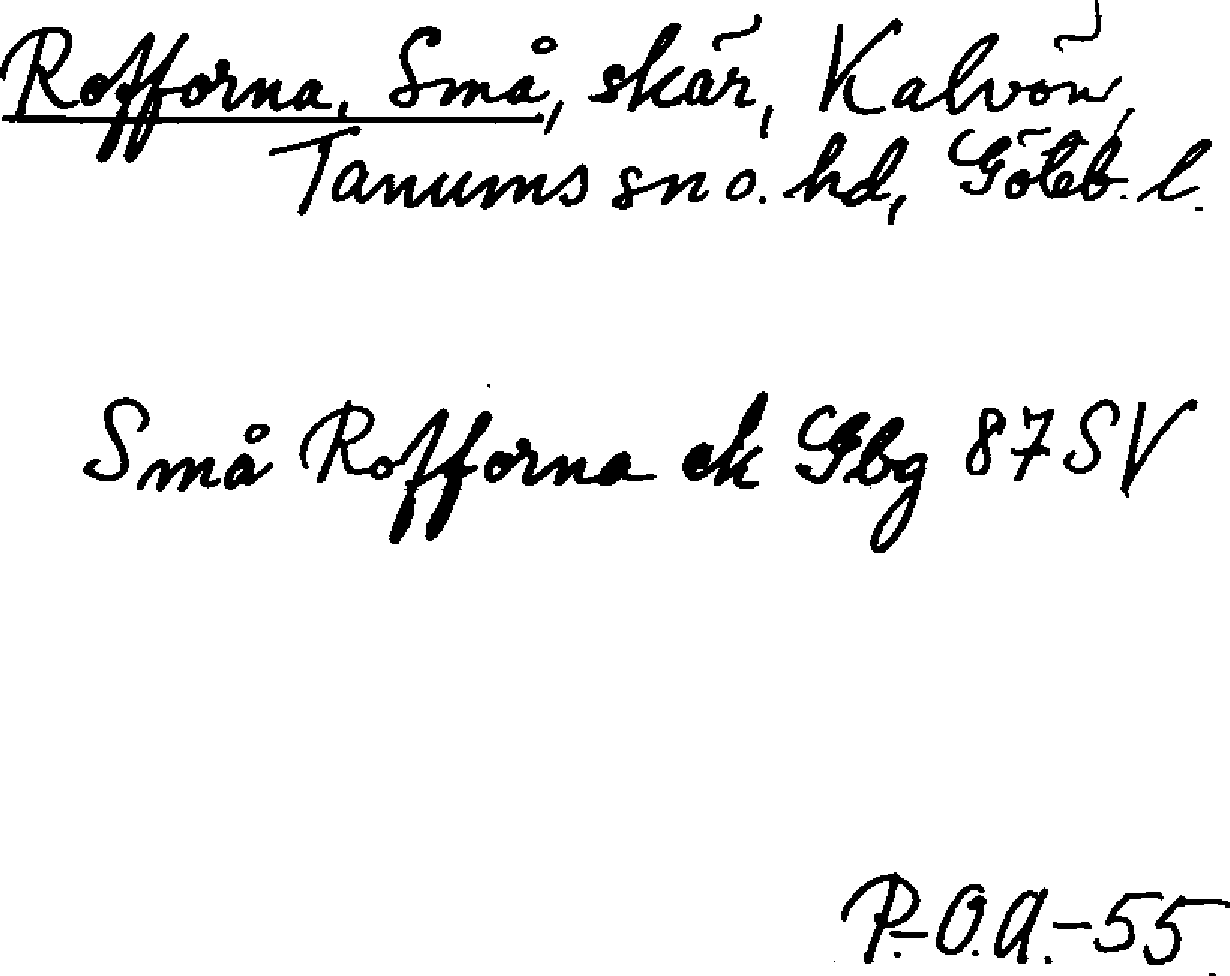 Rofforna, Små, skär, Kalvön,
Tanums sn o. hd, Göteb. l.
Små Rofforna ek Gbg 87 SV
P.-O.A.-55.